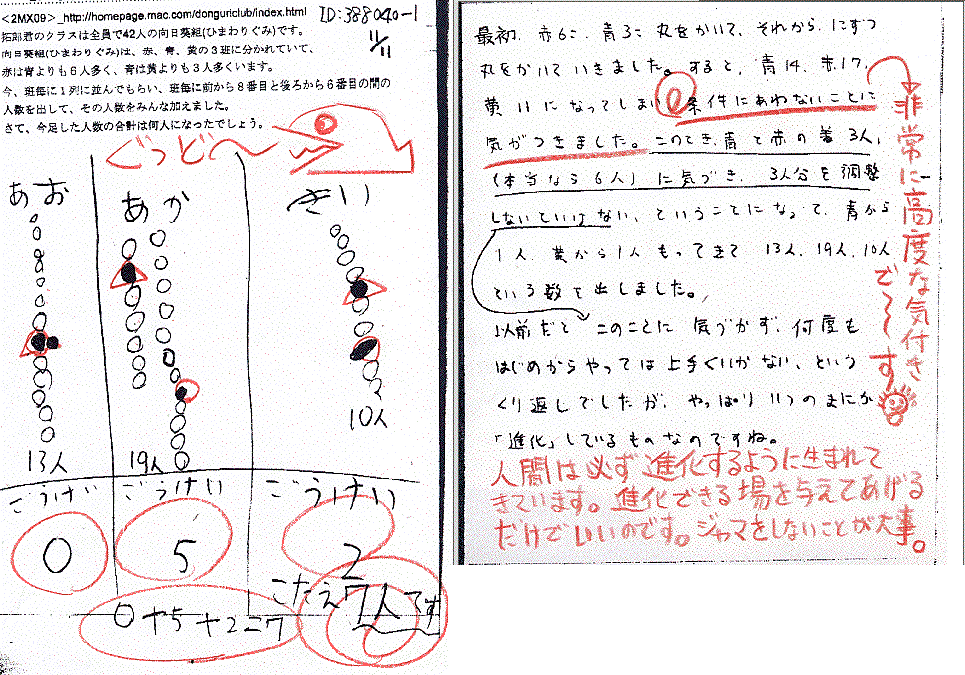 <2MX09>_http://homepage.mac.com/donguriclub/index.html
ID:388040-1
11/11
拓郎君のクラスは全員で42人の向日葵組(ひまわりぐみ)です。
向日葵組(ひまわりぐみ)は、赤、青、黄の3班に分かれていて、
赤は青よりも6人多く、青は黄よりも3人多くいます。
今、班毎に1列に並んでもらい、班毎に前から8番目と後ろから6番目の間の
人数を出して、その人数をみんな加えました。
さて、今足した人数の合計は何人になったでしょう。
ぐっど〜
あお
あか
きい
13人
19人
10人
ごうけい
ごうけい
ごうけい
0
5
2
こたえ7人です
0+5+2=7
最初、赤6こ、青3こ丸をかいて、それから、1こずつ
丸をかいていきました。すると、青14、赤17、
黄11になってしまい、条件にあわないことに
気がつきました。このとき、青と赤の差3人、
(本当なら6人)に気づき、3人分を調整
しないといけない、ということになって、青から
1人、黄から1人もってきて13人、19人、10人
という数を出しました。
以前だとこのことに気づかず、何度も
はじめからやっては上手くいかない、という
くり返しでしたが、やっぱりいつのまにか
「進化」しているものなのですね。
非常に高度な気付きで〜す
人間は必ず進化するように生まれて
きています。進化できる場を与えてあげる
だけでいいのです。ジャマをしないことが大事。